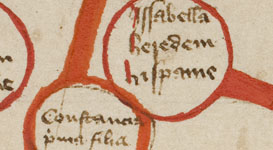 Issabella
heredem
hispanie
Constancia
pma filia